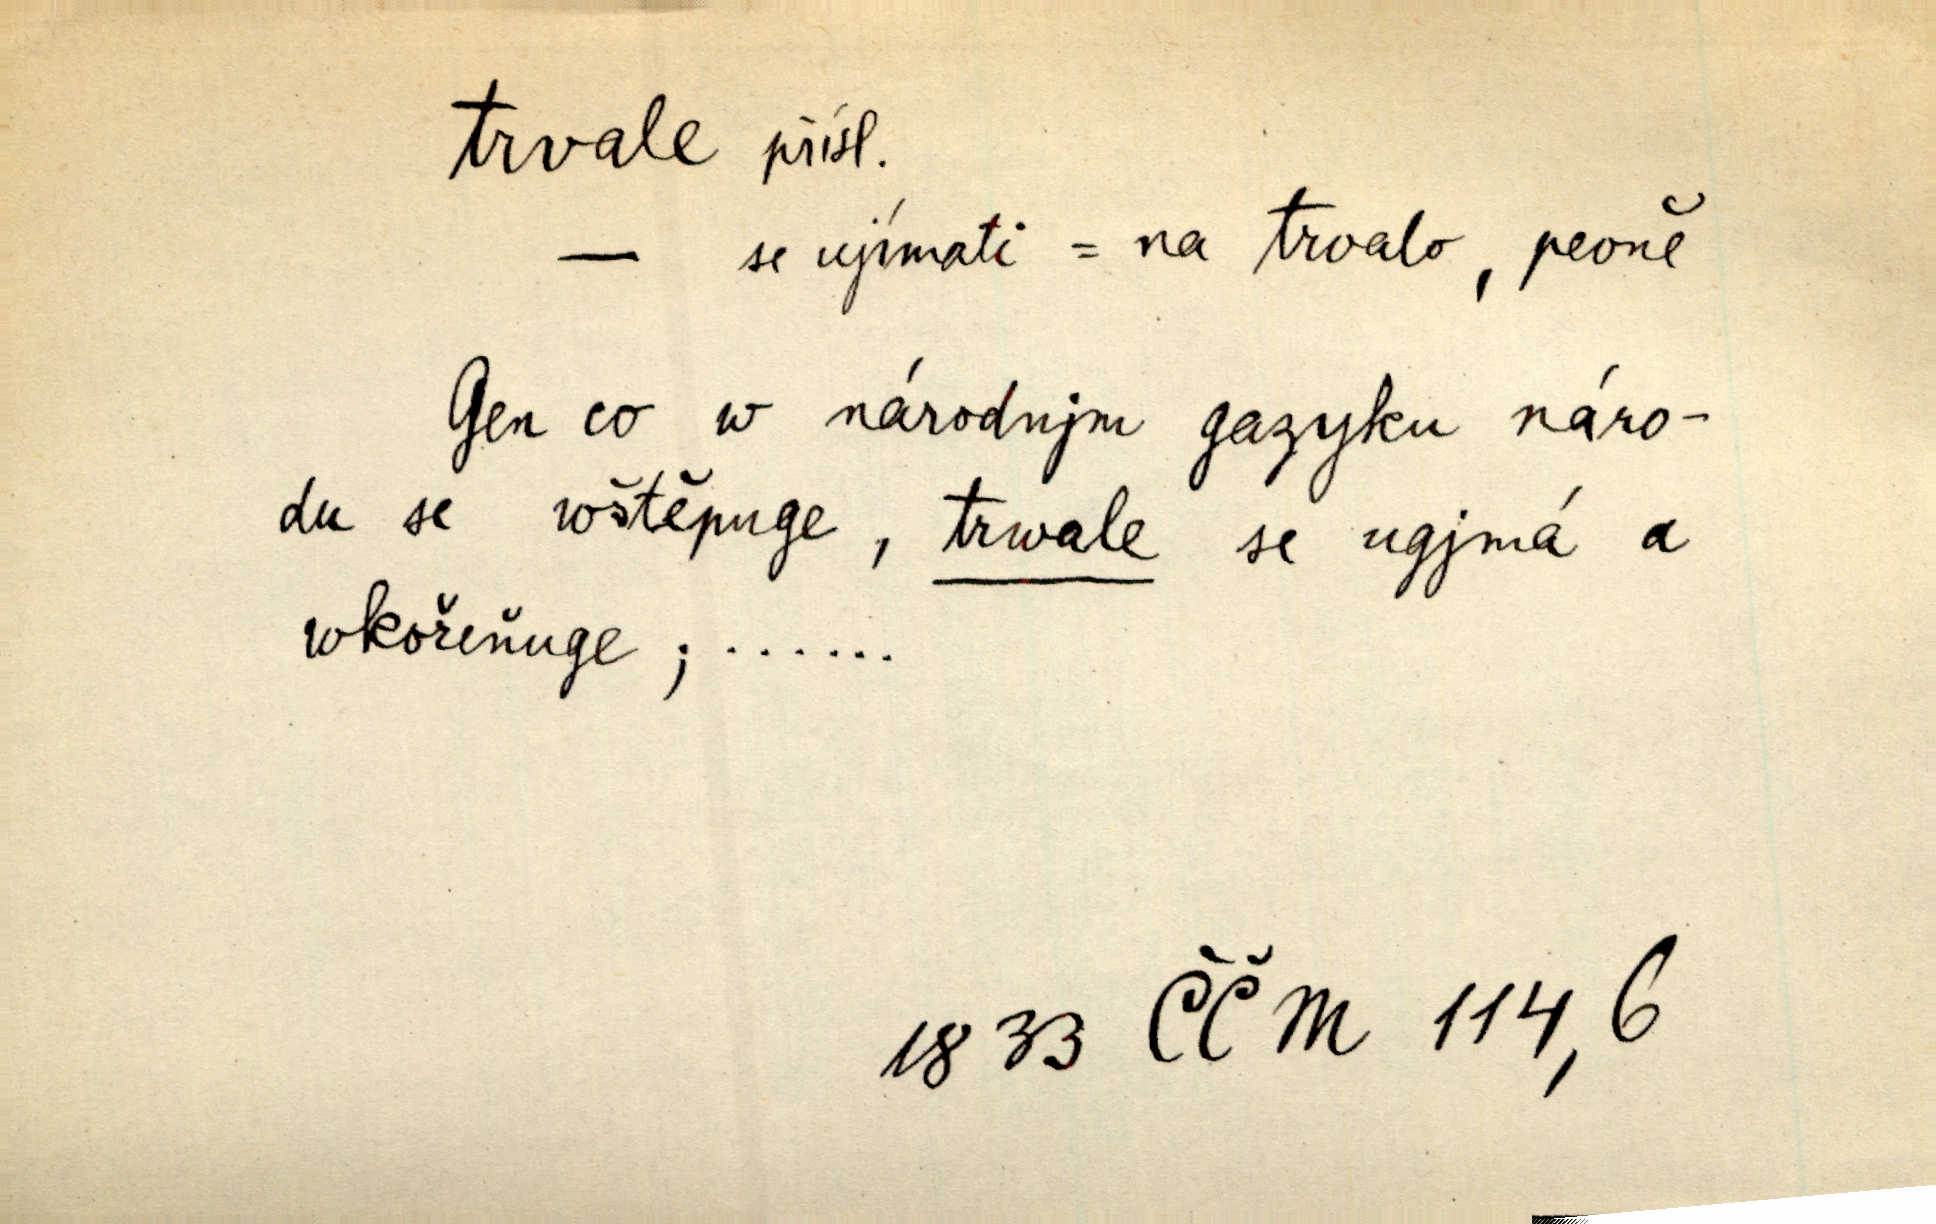 trvale přísl.
— se ujímati = na trvalo, pevně
Gen co w národnjm gazyku náro-
du se wštěpuge, trwale se ugjmá a
wkořeňuge; .......
1833 ČČM 114,6